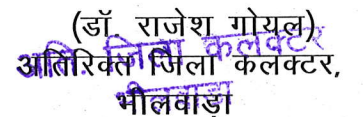 (डॉ राजेश गोयल)
अतिरिक्त जिला कलक्टर,
भीलवाड़ा
अति. जिला कलेक्टर
भीलवाड़ा